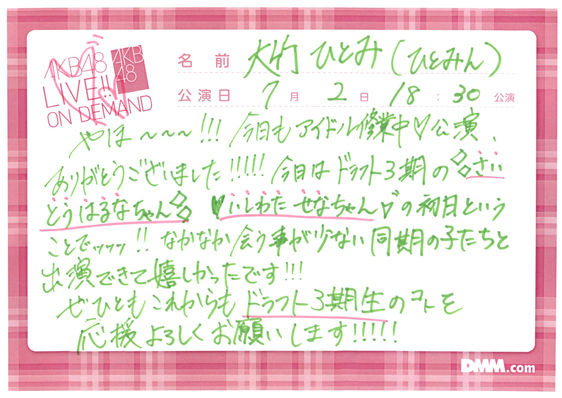 AKB48
LIVE!!
ON DEMAND
AKB
48
名前 大竹ひとみ(ひとみん)
公演日 7月2日 18:30公演
やほ〜〜〜!!! 今日もアイドル修業中♡公演、
ありがとうございました!!!!! 今日はドラフト3期の◇さい
とうはるなちゃん◇ ♥いしわたせなちゃん♡の初日という
ことでッッッ!! なかなか会う事が少ない同期の子たちと
出演できて嬉しかったです!!!
ぜひともこれからもドラフト3期生のコトを
応援よろしくお願いします!!!!!
DMM.com